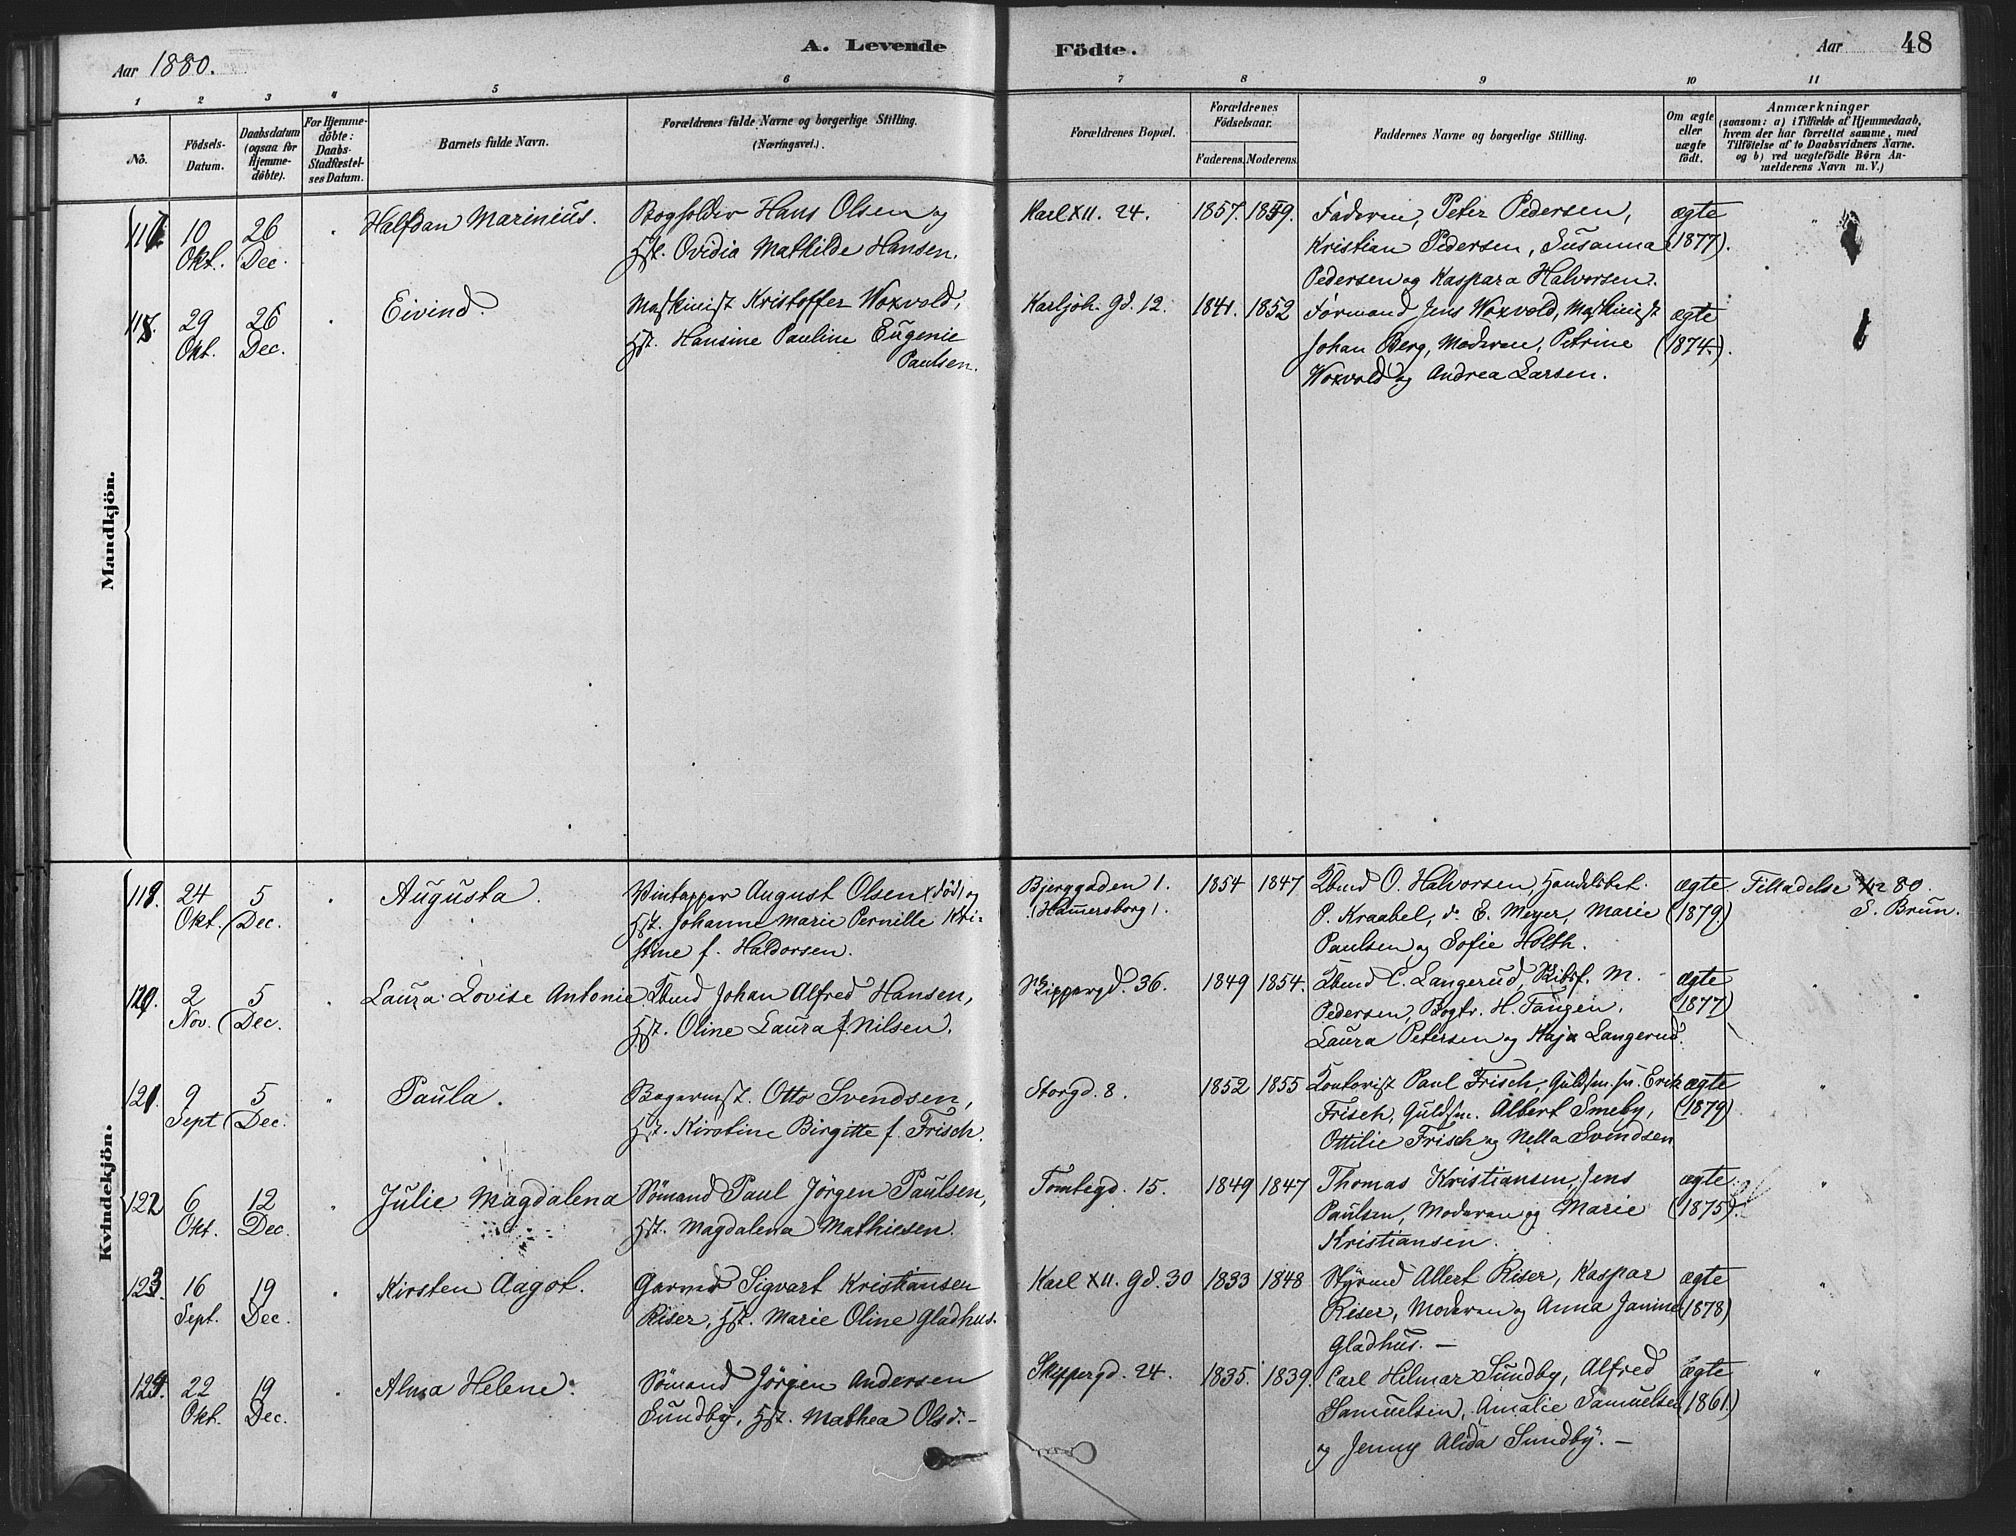 Aar 1880.
A. Levende Födte.
Aar
48
1 2 3 4 5 6 7 8 9 10 11
No.
Födsels-
Datum.
Daabsdatum
(ogsaa for
Hjemme-
döbte).
For Hjemme-
döbte:
Daabs-
Stadfæstel-
ses Datum.
Barnets fulde Navn.
Forældrenes fulde Navne og borgerlige Stilling.
(Næringsvei.)
Forældrenes Bopæl.
Forældrenes
Födselsaar.
Faderens. Moderens.
Faddernes Navne og borgerlige Stilling.
Om ægte
eller
uægte
födt.
Anmærkninger
(saasom: a) i Tilfælde af Hjemmedaab,
hvem der har forrettet samme, med
Tilföielse af to Daabsvidners Navne.
og b) ved uægtefödte Börn An-
melderens Navn m. V.)
Mandkjön.
117. 10 26 Halfdan Marinius. Bogholder Hans Olsen og Karl XII. 24. 1857. 1859. Faderen, Peter Pedersen, ægte
Okt. Dec. Hst. Ovidia Mathilde Hansen. Kristian Pedersen, Susanna (1877).
Pedersen og Kaspara Halvorsen.
118. 29 26 Eivind. Maskinist Kristoffer Woxvold, Karljoh. gd. 12. 1841. 1852 Formand Jens Woxvold, Maskinist ægte
Okt. Dec. Hst. Hansine Pauline Eugenie Johan Berg, Moderen, Petrine (1874.).
Paulsen. Woxvold og Andrea Larsen.
Kvindekjön.
119. 24 5 Augusta. Vintapper August Olsen (död) og Bjerggaden 1. 1854 1847 Tbmd O. Halvorsen, Handelsbet. ægte. Tilladelse 2/12 80.
Okt. Dec. Hst. Johanne Marie Pernille Kri- (Hammersborg). P. Kraabel, do E. Meyer, Marie (1879) S. Brun.
stine f. Haldorsen. Paulsen og Sofie Holth.
120. 2 5 Laura Lovise Antonie Tbmd Johan Alfred Hansen, Skippergd. 36. 1849 1854. Tbmd C. Langerud, Skibsf. M. ægte
Nov. Dec. Hst. Oline Laura f. Nilsen. Pedersen, Bogtr. H. Tangen. (1877)
Laura Petersen og Kaja Langerud.
121. 9 5 Paula. Bagermst. Otto Svendsen, Storgd. 8. 1852 1855 Kontorist Paul Frisch, Guldsm. Erik ægte
Sept Dec. Hst. Kirstine Birgitte f. Frisch. Frisch, Guldsm. Albert Smeby, (1879)
Ottilie Frisch og Nella Svendsen
122 6 12 Julie Magdalena Sömand Paul Jörgen Paulsen, Tomtegd. 15. 1849 1847 Thomas Kristiansen, Jens ægte.
Okt. Dec. Hst. Magdalena Mathiesen. Paulsen, Moderen og Marie (1875).
Kristiansen.
123. 16 19 Kirsten Aagot. Garver Sigvart Kristiansen Karl XII. gd. 30 1833 1848 Styrmd Albert Riser, Kaspar ægte
Sept. Dec. Riser, Hst. Marie Oline Gladhus. Riser, Moderen og Anna Janine (1878)
Gladhus. —
124. 22 19 Alma Helene. Sömand Jörgen Andersen Skippergd. 24. 1835. 1839. Carl Hilmar Sundby, Alfred ægte
Okt. Dec. Sundby, Hst. Mathea Olsd. — Samuelsen, Amalie Samuelsen (1861.)
og Jenny Alida Sundby. —